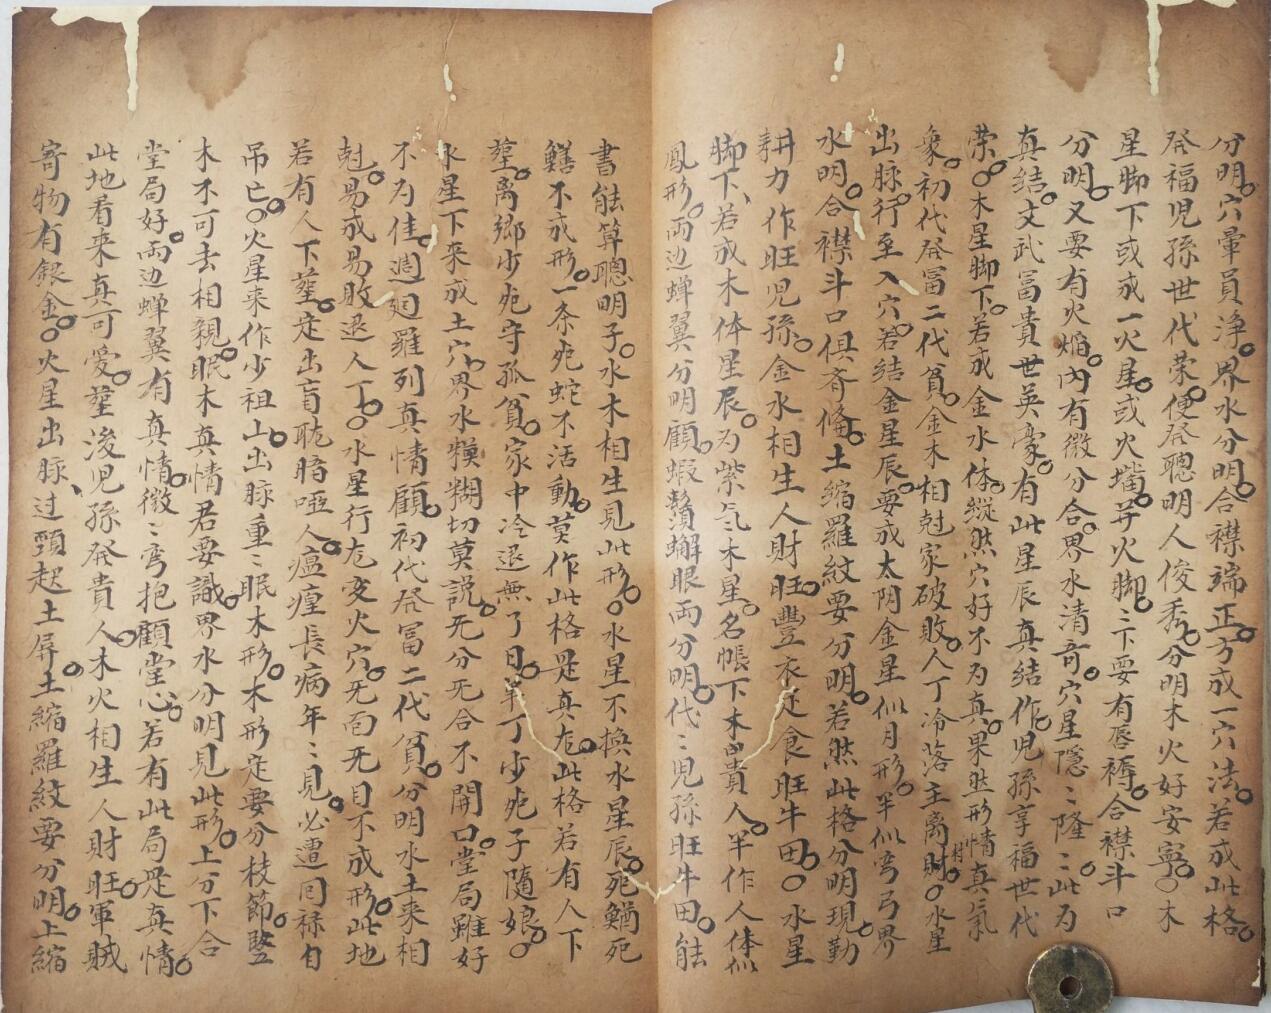 分明。穴暈員淨。界水分明。合襟端正。方成一穴法。若成此格。
發福児孫世代荣。便發聰明人俊秀。分明木火好安寧。○木
星脚下或成一火星。或火嘴并火脚。〻下要有唇褥。合襟斗口
分明。又要有火焰。內有微分合。界水清奇。穴星隱〻隆〻。此为
真結。文武冨貴世英豪。有此星辰真結作。児孫享福世代
荣。○木星脚下。若成金水体。縱然穴好不为真。果然形情真氣
象。初代發冨二代貧。金木相尅家破敗。人丁冷落主离財。○水星
出脉。行至入穴。若結金星辰。要成太阴金星似月形。半似弯弓界
水明。合襟斗口俱斉俻。土縮羅紋要分明。若然此格分明現。勤
耕力作旺児孫。金水相生人財旺。豐衣足食旺牛田。○水星
脚下、若成木体星辰。为紫气木星。名帳下木贵人。半作人体似
鳳形。两边蝉翼分明顧。蝦鬚蠏眼两分明。代〻児孫旺牛田。能
書能算聰明子。水木相生見此形。○水星不换水星辰。死鰌死
鱔不成形。一条死蛇不活動。莫作此格是真龙。此格若有人下
塟、离鄉少死守孤貧。家中冷退無了日。单丁少死子隨娘。○
水星下来成土穴。界水糢糊切莫説。旡分旡合不開口。堂局雖好
不为佳。週廻羅列真情顧。初代發冨二代貧。分明水土来相
尅。易成易敗退人丁。○水星行龙变火穴。旡面旡目不成形。此地
若有人下塟。定出盲聋瘖哑人。瘟㾮長病年〻見。必遭囬禄自
吊亡。○火星来作少祖山。出脉重〻眠木形。木形定要分枝節。竪
木不可去相親。眠木真情君要識。界水分明見此形。上分下合
堂局好。两边蝉翼有真情。微〻弯抱顧堂心。若有此局是真情。
此地看来真可愛。塟後児孫發貴人。木火相生人財旺。軍賊
寄物有銀金。○火星出脉、过頸起土屏。土縮羅紋要分明。上縮